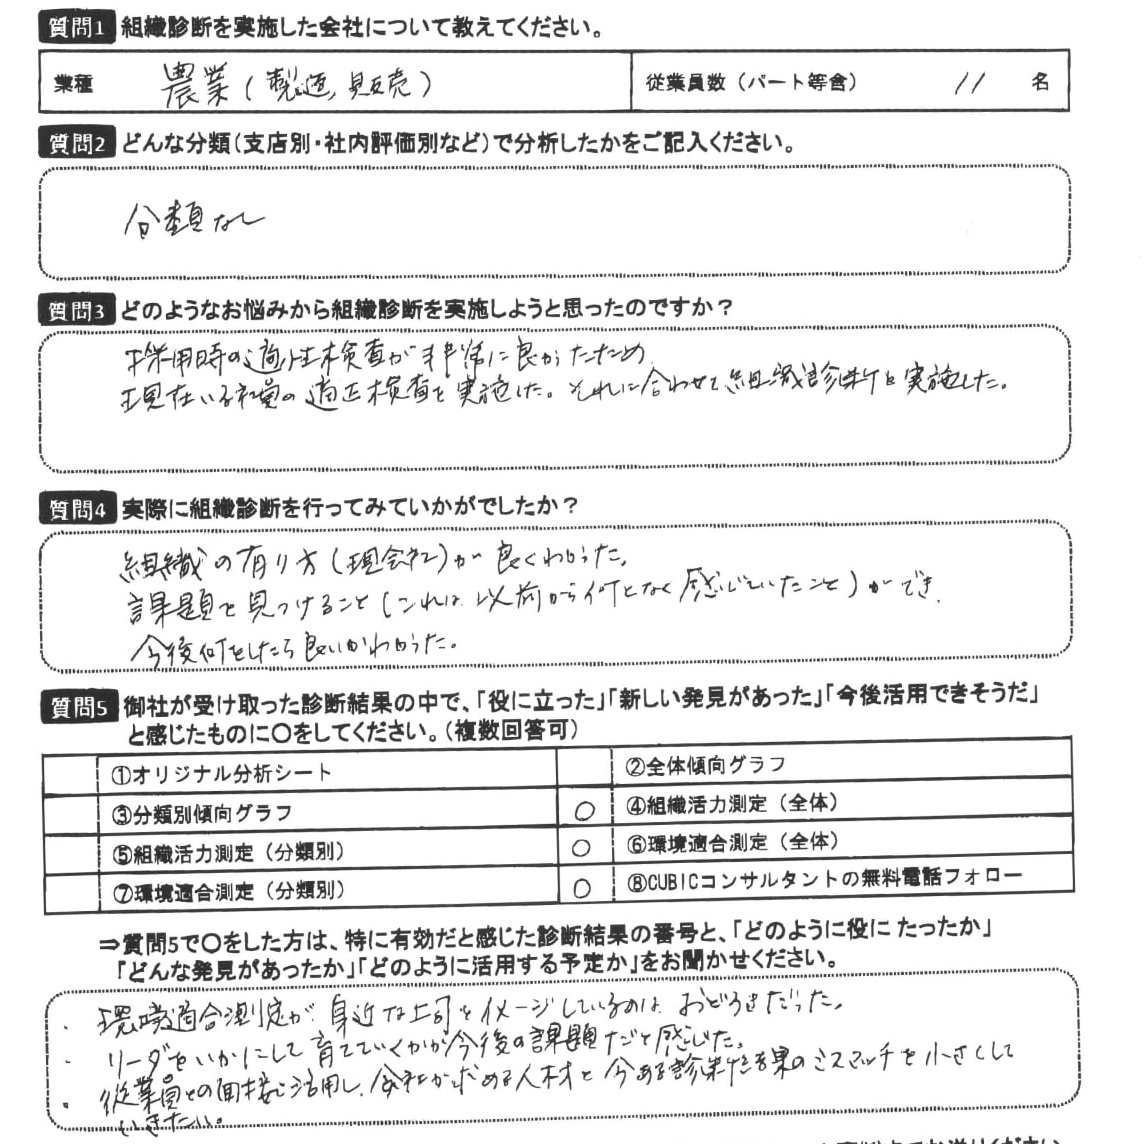 質問1 組織診断を実施した会社について教えてください。
業種 農業(製造,販売) 従業員数(パート等含) 11 名
質問2 どんな分類(支店別・社内評価別など)で分析したかをご記入ください。
分類なし
質問3 どのようなお悩みから組織診断を実施しようと思ったのですか?
採用時の適性検査が非常に良かったため
現在いる社員の適正検査を実施した。それに合わせて組織診断を実施した。
質問4 実際に組織診断を行ってみていかがでしたか?
組織の有り方(現会社)が良くわかった。
課題を見つけること(これは、以前から何となく感じていたこと)ができ、
今後何をしたら良いかわかった。
質問5 御社が受け取った診断結果の中で、「役に立った」「新しい発見があった」「今後活用できそうだ」
と感じたものに〇をしてください。(複数回答可)
①オリジナル分析シート ②全体傾向グラフ
③分類別傾向グラフ ○ ④組織活力測定(全体)
⑤組織活力測定(分類別) ○ ⑥環境適合測定(全体)
⑦環境適合測定(分類別) ○ ⑧CUBICコンサルタントの無料電話フォロー
⇒質問5で〇をした方は、特に有効だと感じた診断結果の番号と、「どのように役に たったか」
「どんな発見があったか」「どのように活用する予定か」をお聞かせください。
・環境適合測定が、身近な上司をイメージしているのは、おどろきだった。
・リーダをいかにして育てていくかが今後の課題だと感じた。
・従業員との面接に活用し、会社が求める人材と今ある診断結果のミスマッチを小さくして
いきたい。